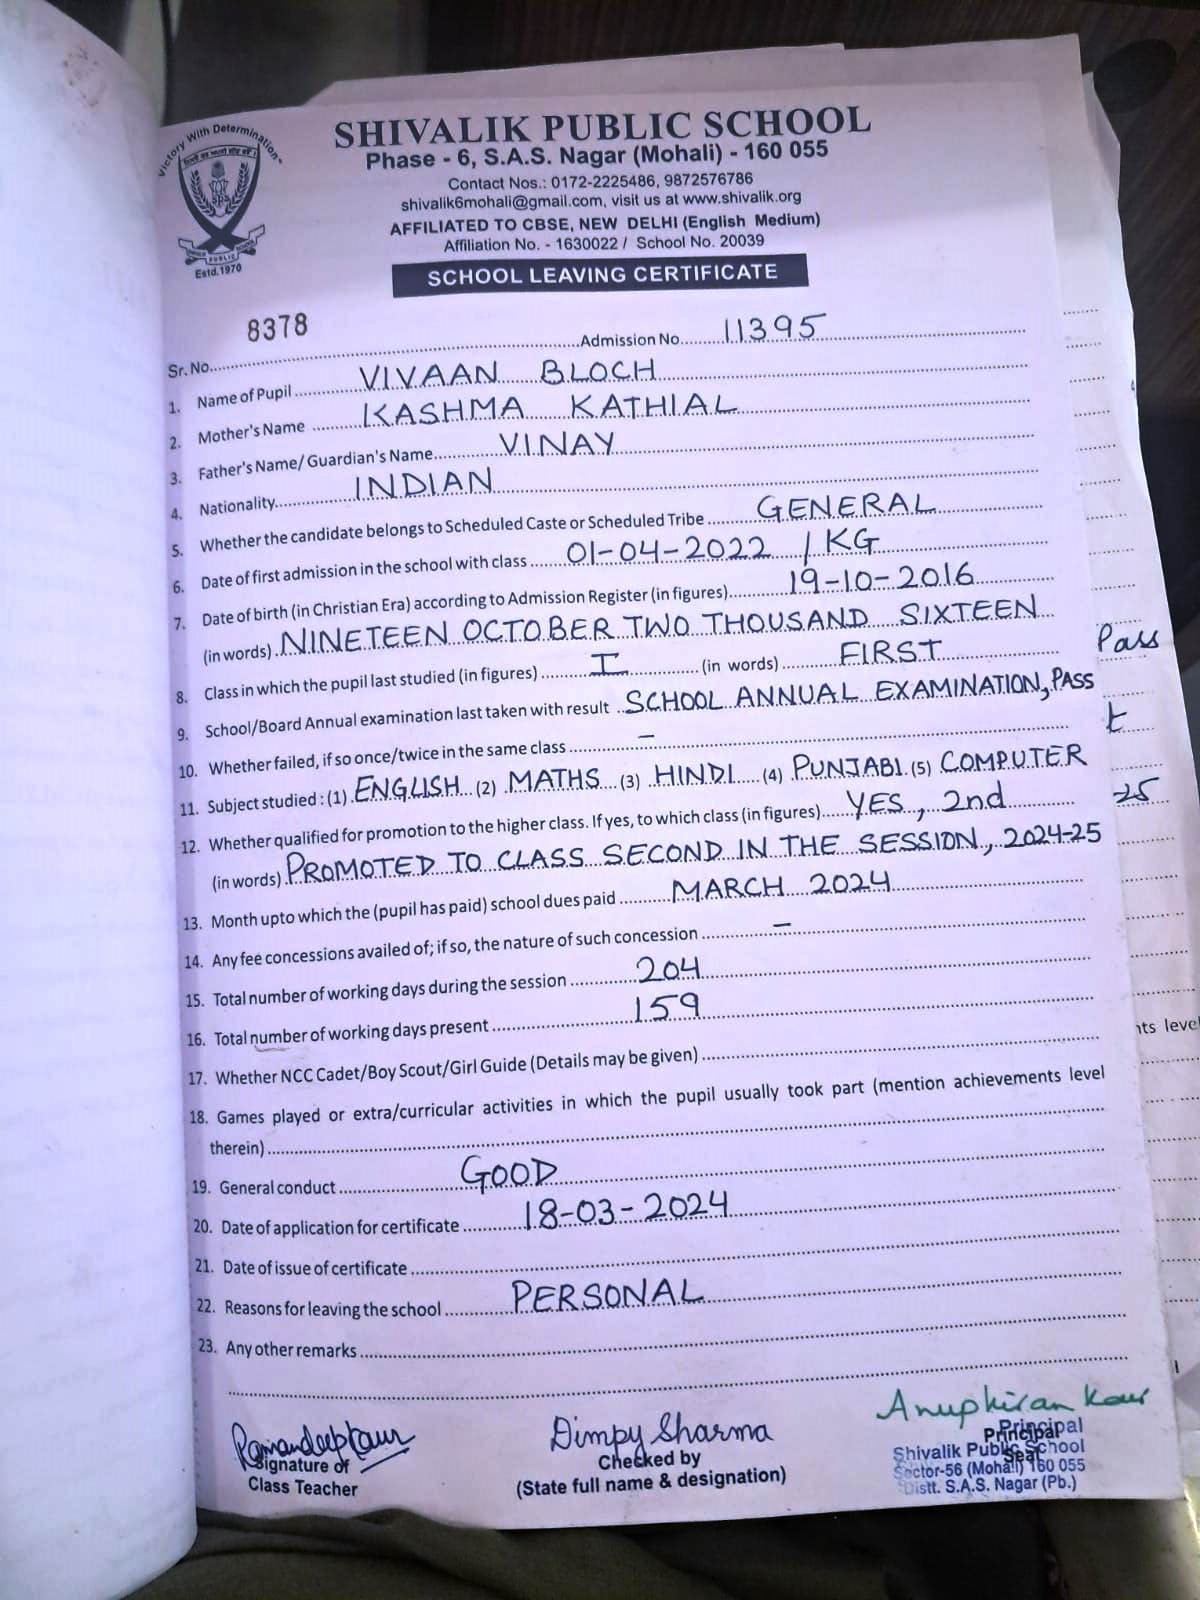 Victory With Determination
Estd.1970
SHIVALIK PUBLIC SCHOOL
Phase - 6, S.A.S. Nagar (Mohali) - 160 055
Contact Nos.: 0172-2225486, 9872576786
shivalik6mohali@gmail.com, visit us at www.shivalik.org
AFFILIATED TO CBSE, NEW DELHI (English Medium)
Affiliation No. - 1630022 / School No. 20039
SCHOOL LEAVING CERTIFICATE
Sr. No. 8378 Admission No. 11395
1. Name of Pupil VIVAAN BLOCH
2. Mother's Name KASHMA KATHIAL
3. Father's Name/ Guardian's Name VINAY
4. Nationality INDIAN
5. Whether the candidate belongs to Scheduled Caste or Scheduled Tribe GENERAL
6. Date of first admission in the school with class 01-04-2022 / KG
7. Date of birth (in Christian Era) according to Admission Register (in figures) 19-10-2016
(in words) NINETEEN OCTOBER TWO THOUSAND SIXTEEN
8. Class in which the pupil last studied (in figures) I (in words) FIRST
9. School/Board Annual examination last taken with result SCHOOL ANNUAL EXAMINATION, PASS
10. Whether failed, if so once/twice in the same class -
11. Subject studied : (1) ENGLISH (2) MATHS (3) HINDI (4) PUNJABI (5) COMPUTER
12. Whether qualified for promotion to the higher class. If yes, to which class (in figures) YES, 2nd
(in words) PROMOTED TO CLASS SECOND IN THE SESSION, 2024-25
13. Month upto which the (pupil has paid) school dues paid MARCH 2024
14. Any fee concessions availed of; if so, the nature of such concession -
15. Total number of working days during the session 204
16. Total number of working days present 159
17. Whether NCC Cadet/Boy Scout/Girl Guide (Details may be given)
18. Games played or extra/curricular activities in which the pupil usually took part (mention achievements level
therein)
19. General conduct GOOD
20. Date of application for certificate 18-03-2024
21. Date of issue of certificate
22. Reasons for leaving the school PERSONAL
23. Any other remarks
Ramandeep Kaur
Signature of
Class Teacher
Dimpy Sharma
Checked by
(State full name & designation)
Anupkiran Kaur
Principal
Principal
Shivalik Public School
Seal
Sector-56 (Mohali) 160 055
Distt. S.A.S. Nagar (Pb.)
Pass
t
-25
nts level